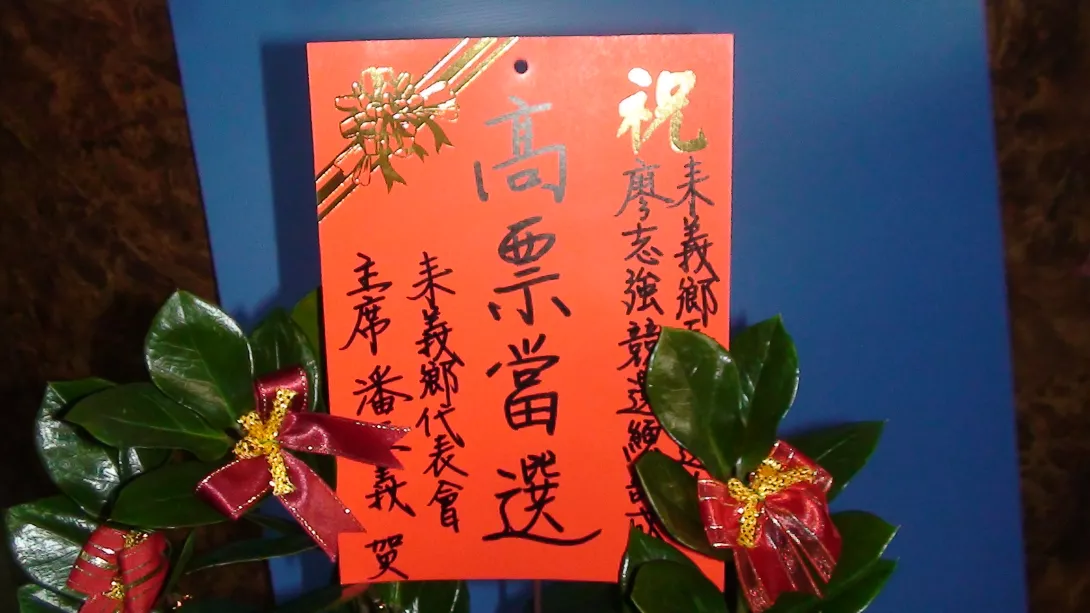 祝
耒義鄉
廖志強競選
高票當選
耒義鄉代表會
主席 潘 義 賀